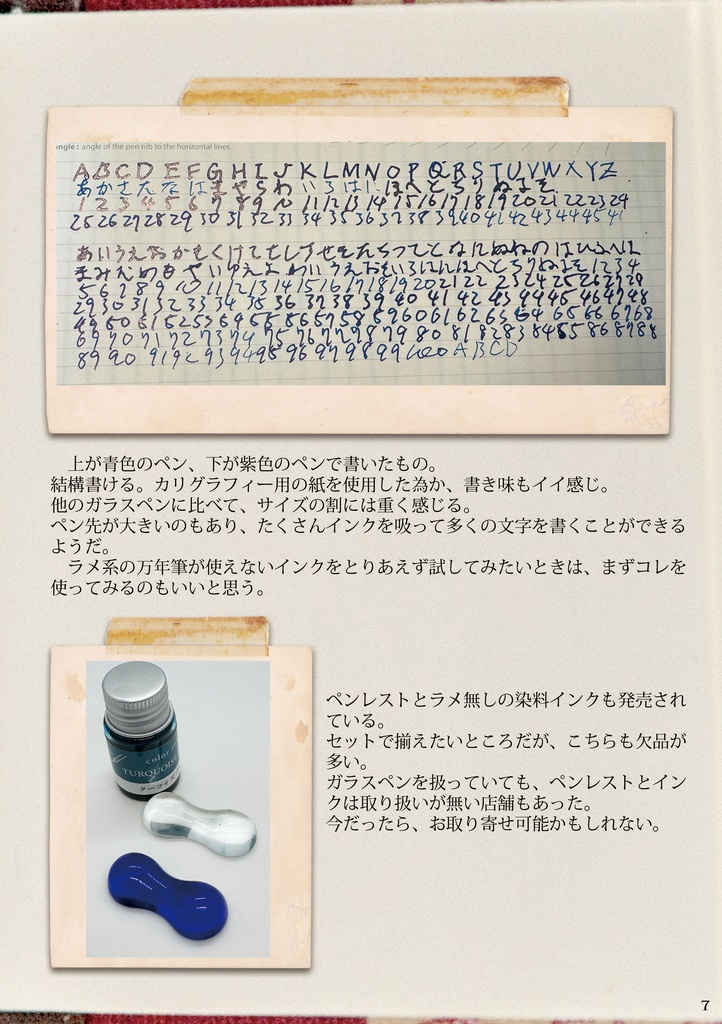 angle : angle of the pen nib to the horizontal lines.
A B C D E F G H I J K L M N O P Q R S T U V W X Y Z
あかさたなはまやらわ いろはにほへとちりぬるを
1 2 3 4 5 6 7 8 9 10 11 12 13 14 15 16 17 18 19 20 21 22 23 24
25 26 27 28 29 30 31 32 33 34 35 36 37 38 39 40 41 42 43 44 45
あいうえおかきくけこさしすせそたちつてとなにぬねのはひふへほ
まみむめもやいゆえよわいうえをいろはにほへとちりぬるを 1 2 3 4
5 6 7 8 9 10 11 12 13 14 15 16 17 18 19 20 21 22 23 24 25 26 27 28
29 30 31 32 33 34 35 36 37 38 39 40 41 42 43 44 45 46 47 48
49 50 51 52 53 54 55 56 57 58 59 60 61 62 63 64 65 66 67 68
69 70 71 72 73 74 75 76 77 78 79 80 81 82 83 84 85 86 87 88
89 90 91 92 93 94 95 96 97 98 99 100 A B C D
上が青色のペン、下が紫色のペンで書いたもの。
結構書ける。カリグラフィー用の紙を使用した為か、書き味もイイ感じ。
他のガラスペンに比べて、サイズの割には重く感じる。
ペン先が大きいのもあり、たくさんインクを吸って多くの文字を書くことができる
ようだ。
ラメ系の万年筆が使えないインクをとりあえず試してみたいときは、まずコレを
使ってみるのもいいと思う。
color
TURQUOISE
ターコイズ
ペンレストとラメ無しの染料インクも発売され
ている。
セットで揃えたいところだが、こちらも欠品が
多い。
ガラスペンを扱っていても、ペンレストとイン
クは取り扱いが無い店舗もあった。
今だったら、お取り寄せ可能かもしれない。
7